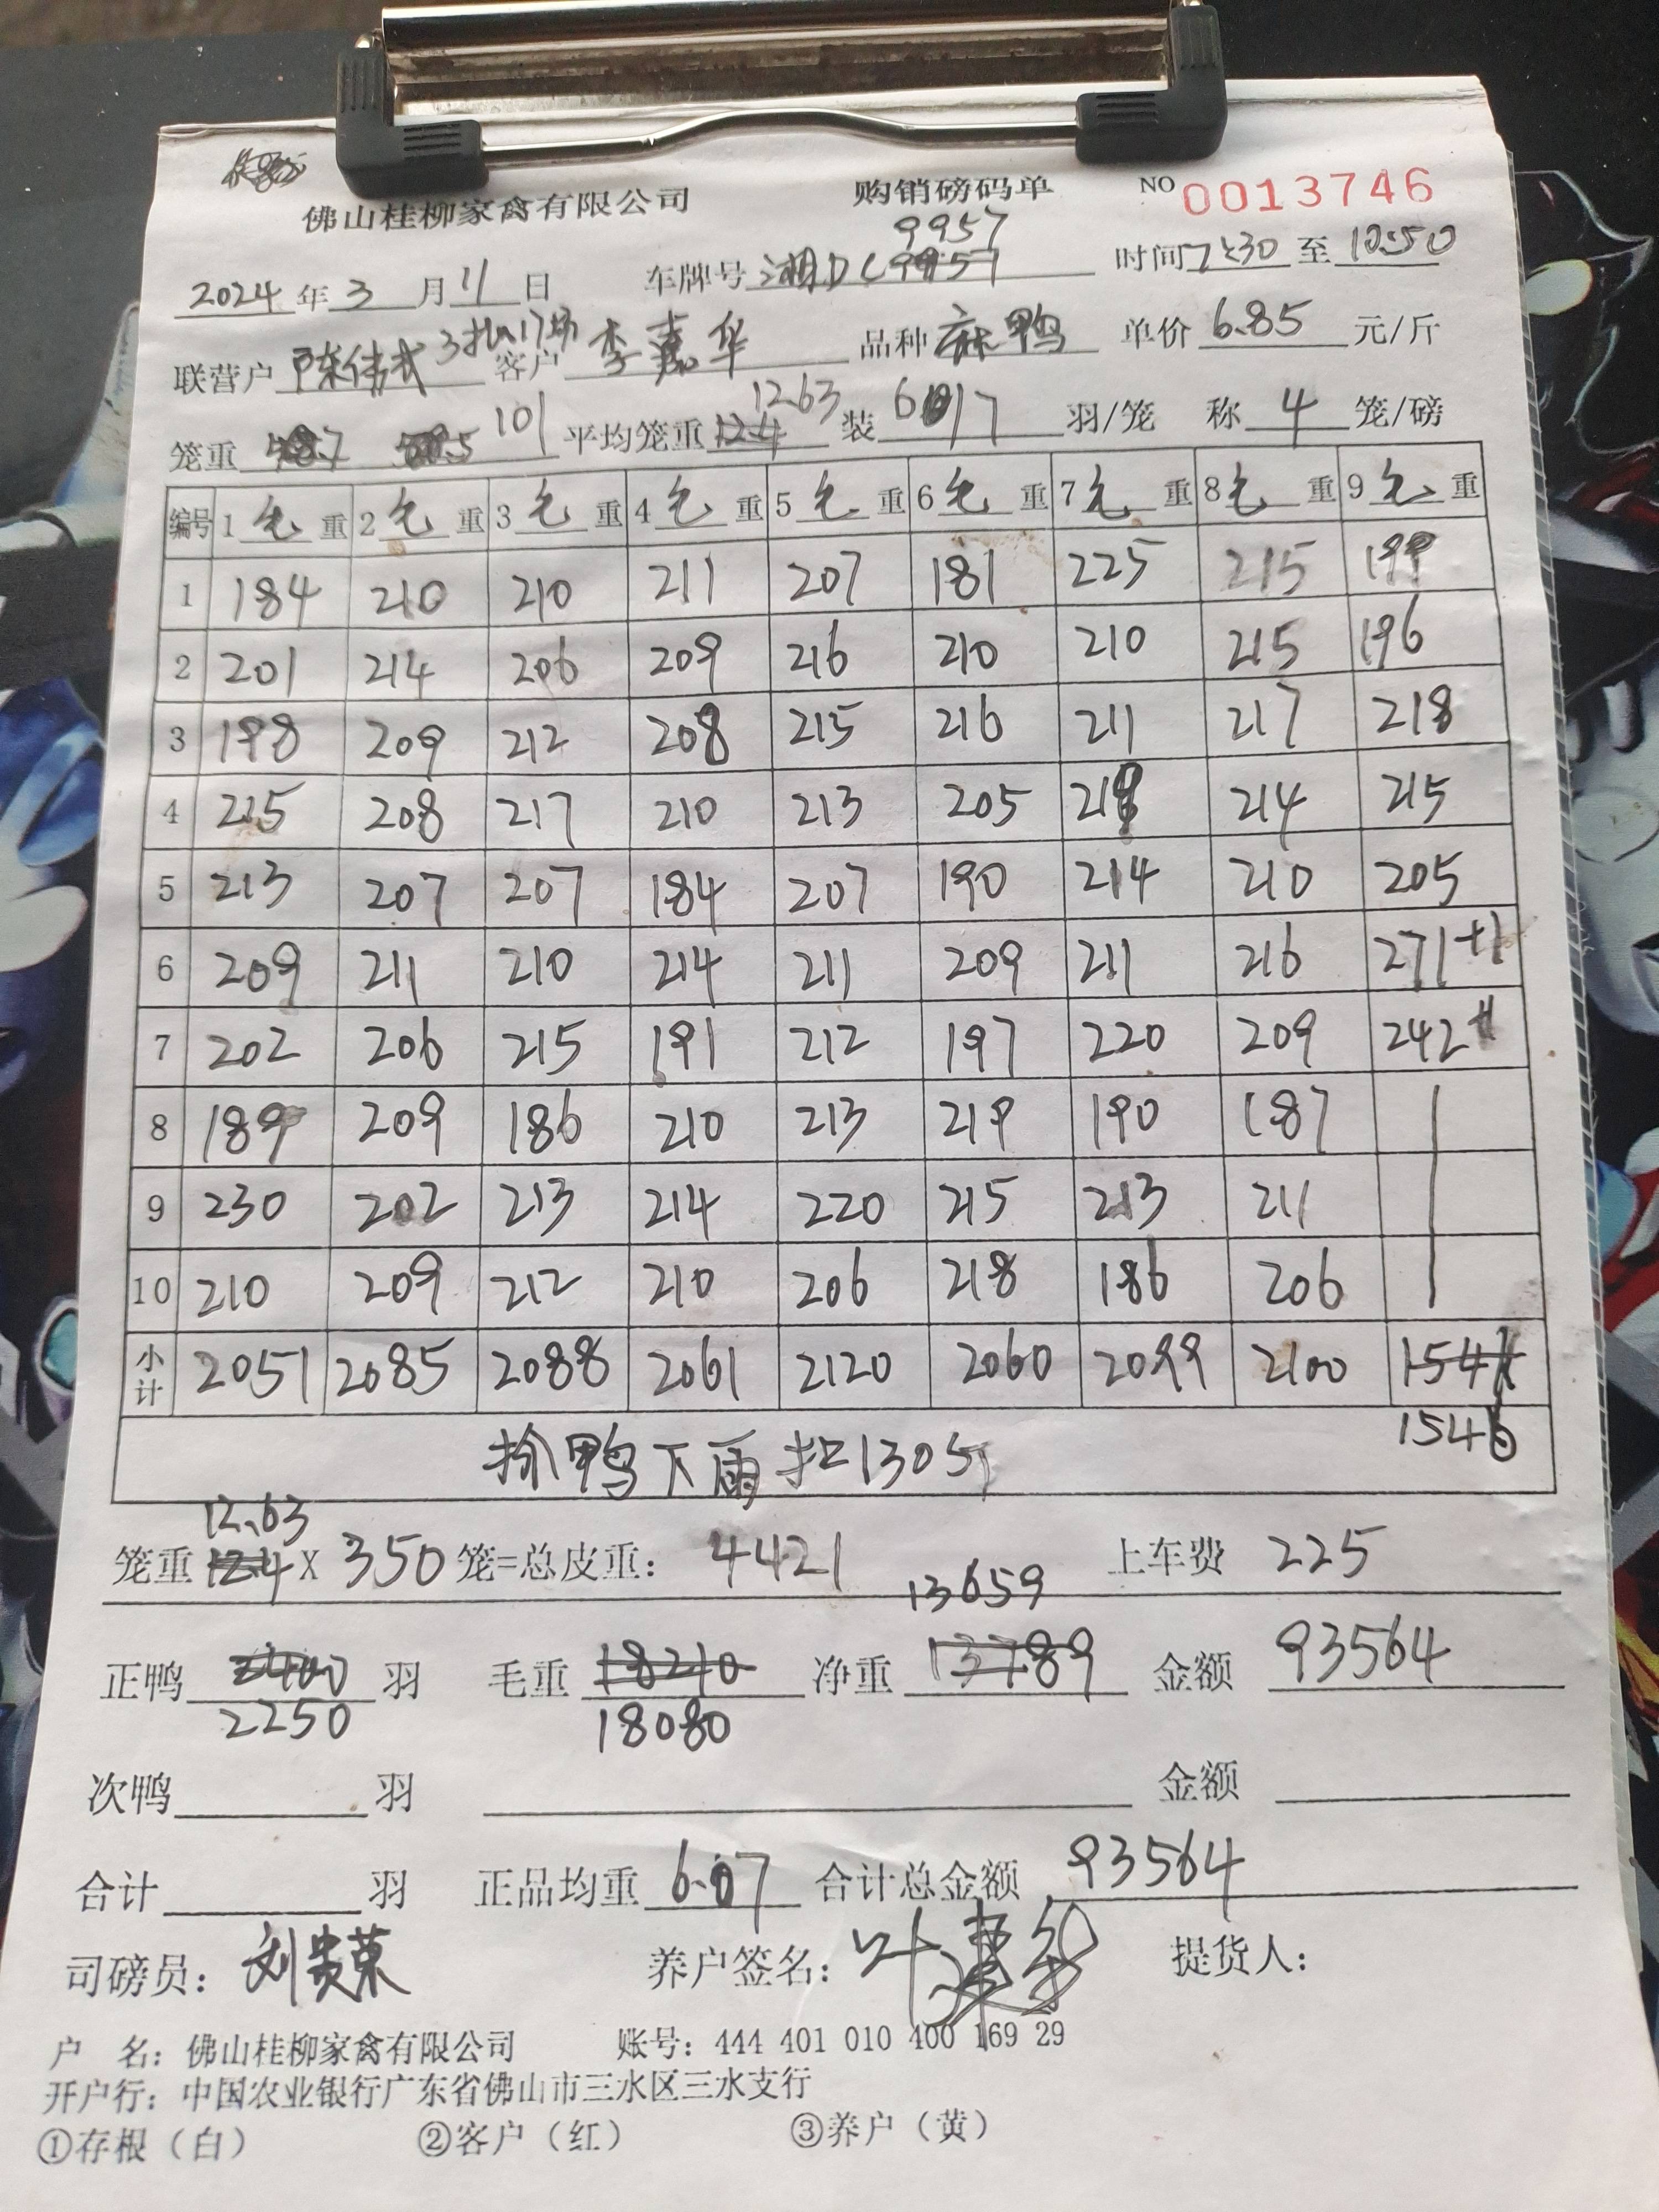 佛山桂柳家禽有限公司 购销磅码单 NO 0013746
9957
2024 年 3 月 11 日 车牌号 湘DC9957 时间 7:30 至 10:50
联营户 陈伟武 客户 李嘉华 品种 麻鸭 单价 6.85 元/斤
12.63
笼重 101 平均笼重 12.4 装 6 17 羽/笼 称 4 笼/磅
编号 1 毛 重 2 毛 重 3 毛 重 4 毛 重 5 毛 重 6 毛 重 7 毛 重 8 毛 重 9 毛 重
1 184 210 210 211 207 181 225 215 199
2 201 214 206 209 216 210 210 215 196
3 198 209 212 208 215 216 211 217 218
4 215 208 217 210 213 205 219 214 215
5 213 207 207 184 207 190 214 210 205
6 209 211 210 214 211 209 211 216 271+1
7 202 206 215 191 212 197 220 209 242
8 189 209 186 210 213 219 190 187
9 230 202 213 214 220 215 213 211
10 210 209 212 210 206 218 186 206
小计 2051 2085 2088 2061 2120 2060 2099 2100
1546
拎鸭下雨扣130斤
12.63
笼重 12.4 X 350 笼=总皮重: 4421 上车费 225
13659
正鸭 2400 羽 毛重 18210 净重 13789 金额 93564
2250 18080
次鸭 羽 金额
合计 羽 正品均重 6.07 合计总金额 93564
司磅员: 刘贵荣 养户签名: 叶 提货人:
户 名: 佛山桂柳家禽有限公司 账号: 444 401 010 400 169 29
开户行: 中国农业银行广东省佛山市三水区三水支行
①存根（白） ②客户（红） ③养户（黄）